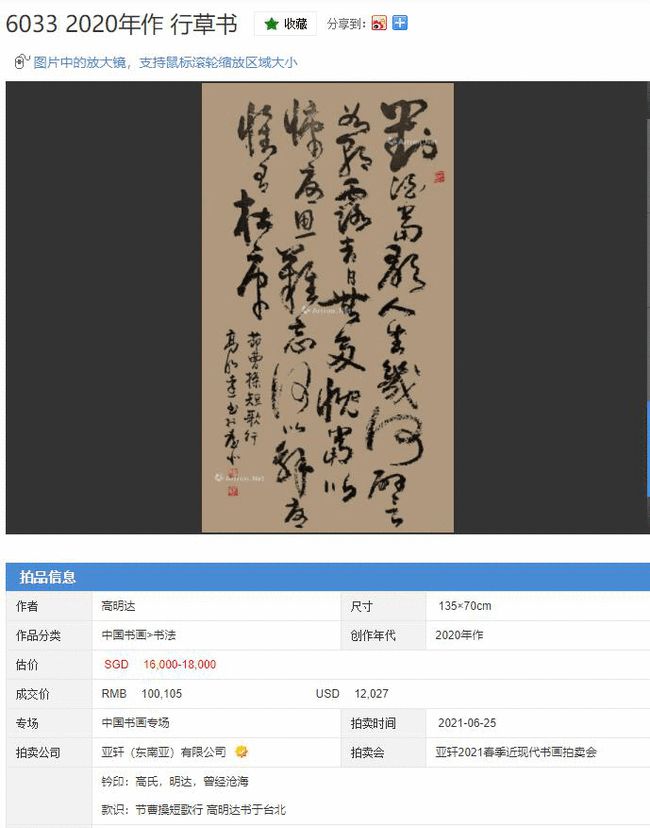 6033 2020年作 行草书
收藏
分享到:
图片中的放大镜，支持鼠标滚轮缩放区域大小
對酒當歌人生幾何譬
如朝露去日苦多慨當以
慷憂思難忘何以解憂
惟有杜康
節曹操短歌行
高明達書於臺北
Artron.Net
Artron.Net
Artron.Net
拍品信息
作者 高明达 尺寸 135×70cm
作品分类 中国书画>书法 创作年代 2020年作
估价 SGD 16,000-18,000
成交价 RMB 100,105 USD 12,027
专场 中国书画专场 拍卖时间 2021-06-25
拍卖公司 亚轩（东南亚）有限公司 拍卖会 亚轩2021春季近现代书画拍卖会
钤印：高氏，明达，曾经沧海
款识：节曹操短歌行 高明达书于台北